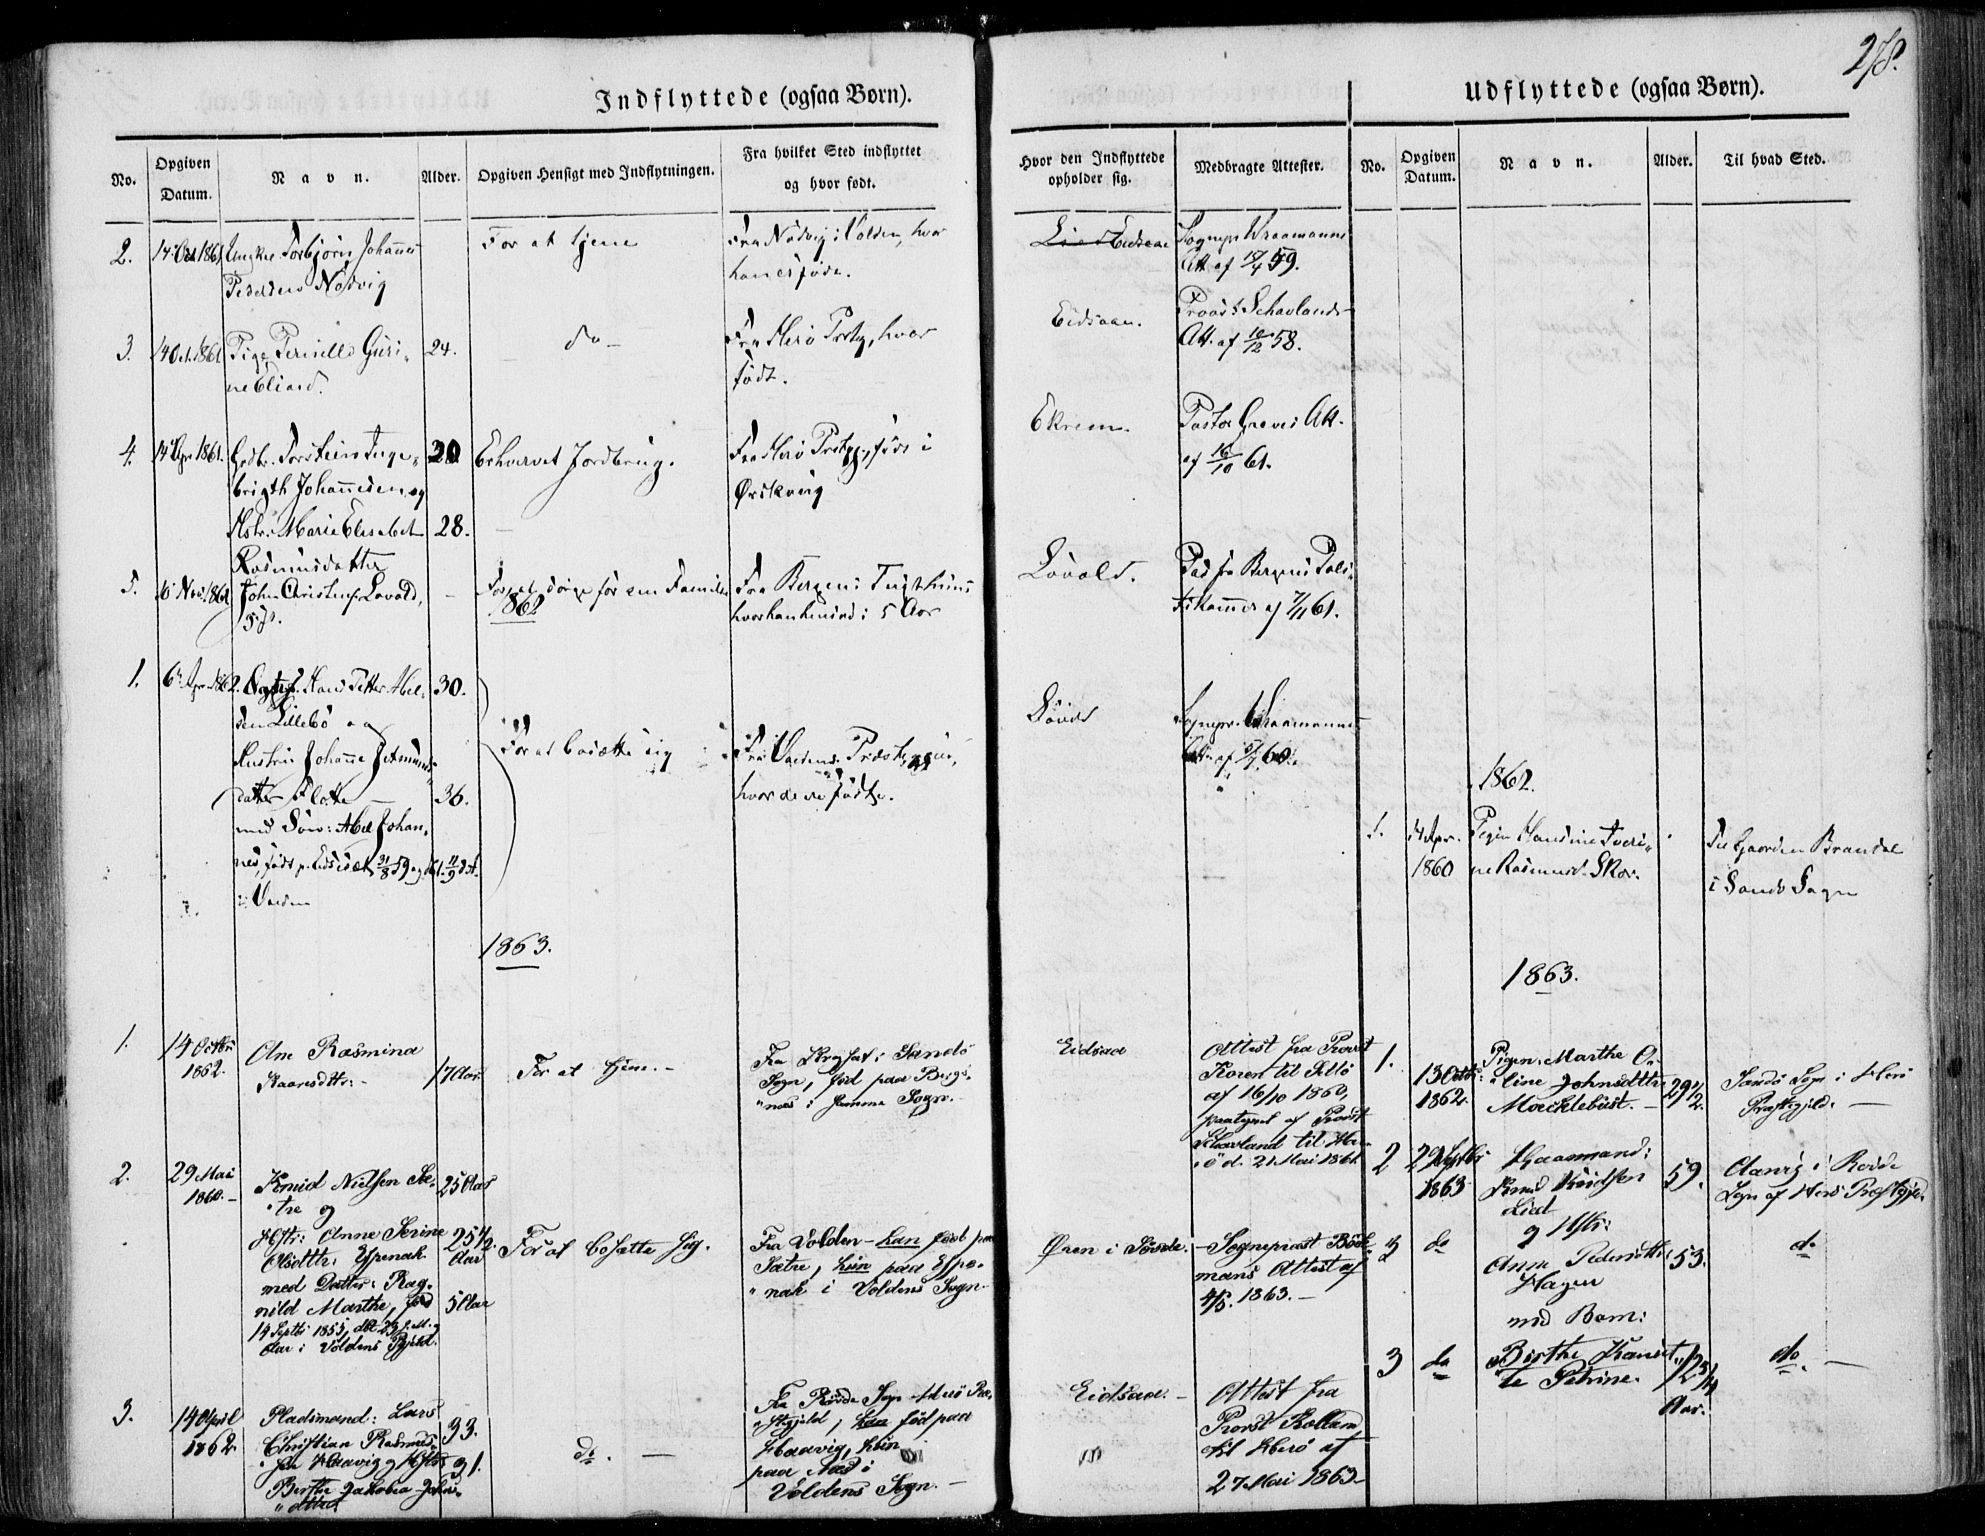 278.
Indflyttede (ogsaa Børn).
No.
Opgiven
Datum.
Navn.
Alder.
Opgiven Hensigt med Indflytningen.
Fra hvilket Sted indflyttet
og hvor født.
Hvor den Indflyttede
opholder sig.
Medbragte Attester.
Udflyttede (ogsaa Børn).
No.
Opgiven
Datum.
Navn.
Alder.
Til hvad Sted.
2.
14 Oct 1861
Ungkel Torbjørn Johannes
Pedersen Nødvig
For at tjene
Fra Nødvig i Volden, hvor
han er født.
Eidsaae
Sognepr. Vraamanns
Att. af 59.
3.
14 Oct. 1861
Pige Pernille Guri-
ne Eliasd.
24.
do
Fra Herø Prstg., hvor
født.
Eidsaae.
Provst Schavlands
Att. af 10/12 58.
4.
14 Apr 1861.
Grdbr. Torstein Inge-
brigth Johannesen og
Hstr. Marie Elisabet
Rasmusdatter
30
28.
Erhvervet Jordbrug.
Fra Herø Prstg., født i
Ørskevig
Ekrem.
Pastor Greves Att.
af 16/10 61.
5.
16 Nov. 1861
John Christens. Løvold,
For at sørge for sin Familie
Fra Bergens Tugthuus
hvor han hensad i 5 Aar
Løvold.
Pas fra Bergens Poli-
tikammer af 7/11 61.
1862
1.
6 Apr. 1862.
Hans Petter Abel-
sen Lillebø og
Hustru Johanne J. Asmunds-
datter Flotte
med Søn: Abel Johan-
nes, født p. Eidset 31/8 59
i Volden
30.
36.
For at bosætte sig
Fra Voldens Præstegj.,
hvor de er fødte.
Sognepr. Vraamanns
Att. af 60.
1862.
1.
14 Apr.
1860
Pigen Handine Iveri-
ne Rasmusd. Skor.
Til Gaarden Brandal
i Sands Sogn
1863.
1.
14 Octbr
1862.
Ane Rasmina
Kaaresdttr:
17 Aar
For at tjene.
Fra i Sands
Sogn, fød paa Berge-
næs i samme Sogn.
Eidsaa
Attest fra Provst
Koren til
af 16/10 1860,
paategnet af Provst
Schavland til Her-
ø d. 21 Mai 1861.
1863.
1.
13 Octbr:
1862.
Pigen: Marthe O-
line Johnsdttr.
Moeklebust.
29 1/2.
Sands Sogn i Herø
Præstegjeld.
2.
29 Mai
1860.
Knud Nielsen Sæ-
tre og
Hstr: Anne Serine
Olsdttr: Espenak
med Datter: Rag-
nild Marthe, fød
14 Septbr 1855, døbt 23 s. M. og
Aar i Voldens Pgjeld.
25 Aar
25 1/2
Aar
5 Aar
For at bosætte sig.
Fra Volden - han født paa
Sætre, hun paa Espe-
nak i Voldens Sogn.
Øren i Sørde.
Sogneprest Bøck-
mans Attest af
4/5. 1863.
2
29 Septbr
1863
Haasmand:
Knud Knudsen
Liset
og Hstr:
59.
Aanes i Røvde
Sogn af Herø Præstegjeld.
3
do
Anne Pedersdttr:
Hagen
med Barn:
53.
do
3
do
Birthe Kanut-
te Petrine.
12 3/4
Aar.
do.
3.
14 April
1862.
Pladsmand: Lars
Christian Rasmus-
sen Haavig og Hstr:
Berthe Jakobea Johns-
datter
33.
31.
do.
Fra Røvde Sogn Herø Præ-
stegjeld, han født paa
Haavig, hun
paa Næs i
Voldens Sogn.
Eidsaa.
Attest fra
Provst Kollam
til Herø af
27 Mai 1863.